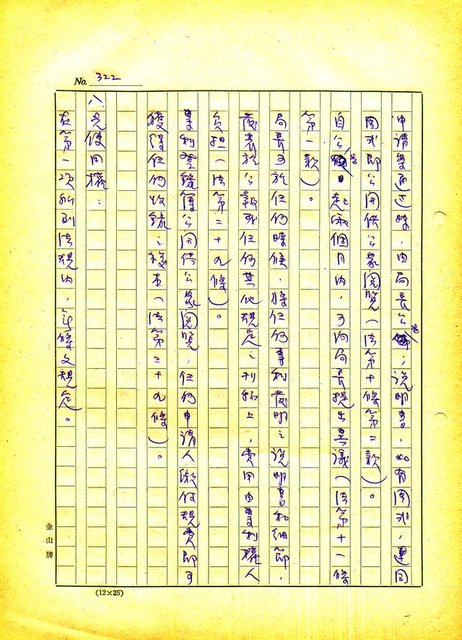 No. 322
申請案通過時，由局長公告；說明書，如有圖式，連同
圖式即公開供公眾閱覽（法第十條第二款）。
自公告日起兩個月內，可向局長提出異議（法第十一條
第一款）。
局長可於任何時候，將任何專利發明之說明書和細節，
發表於公報或任何其他規定之刊物上，費用由專利權人
負担（法第二十九條）。
專利登錄簿公開供公眾閱覽，任何申請人繳付規費即可
獲得任何紀錄之複本（法第三十九條）。
八、先使用權：
在第一次和法規內，無條文規定。
金山牌
(12×25)